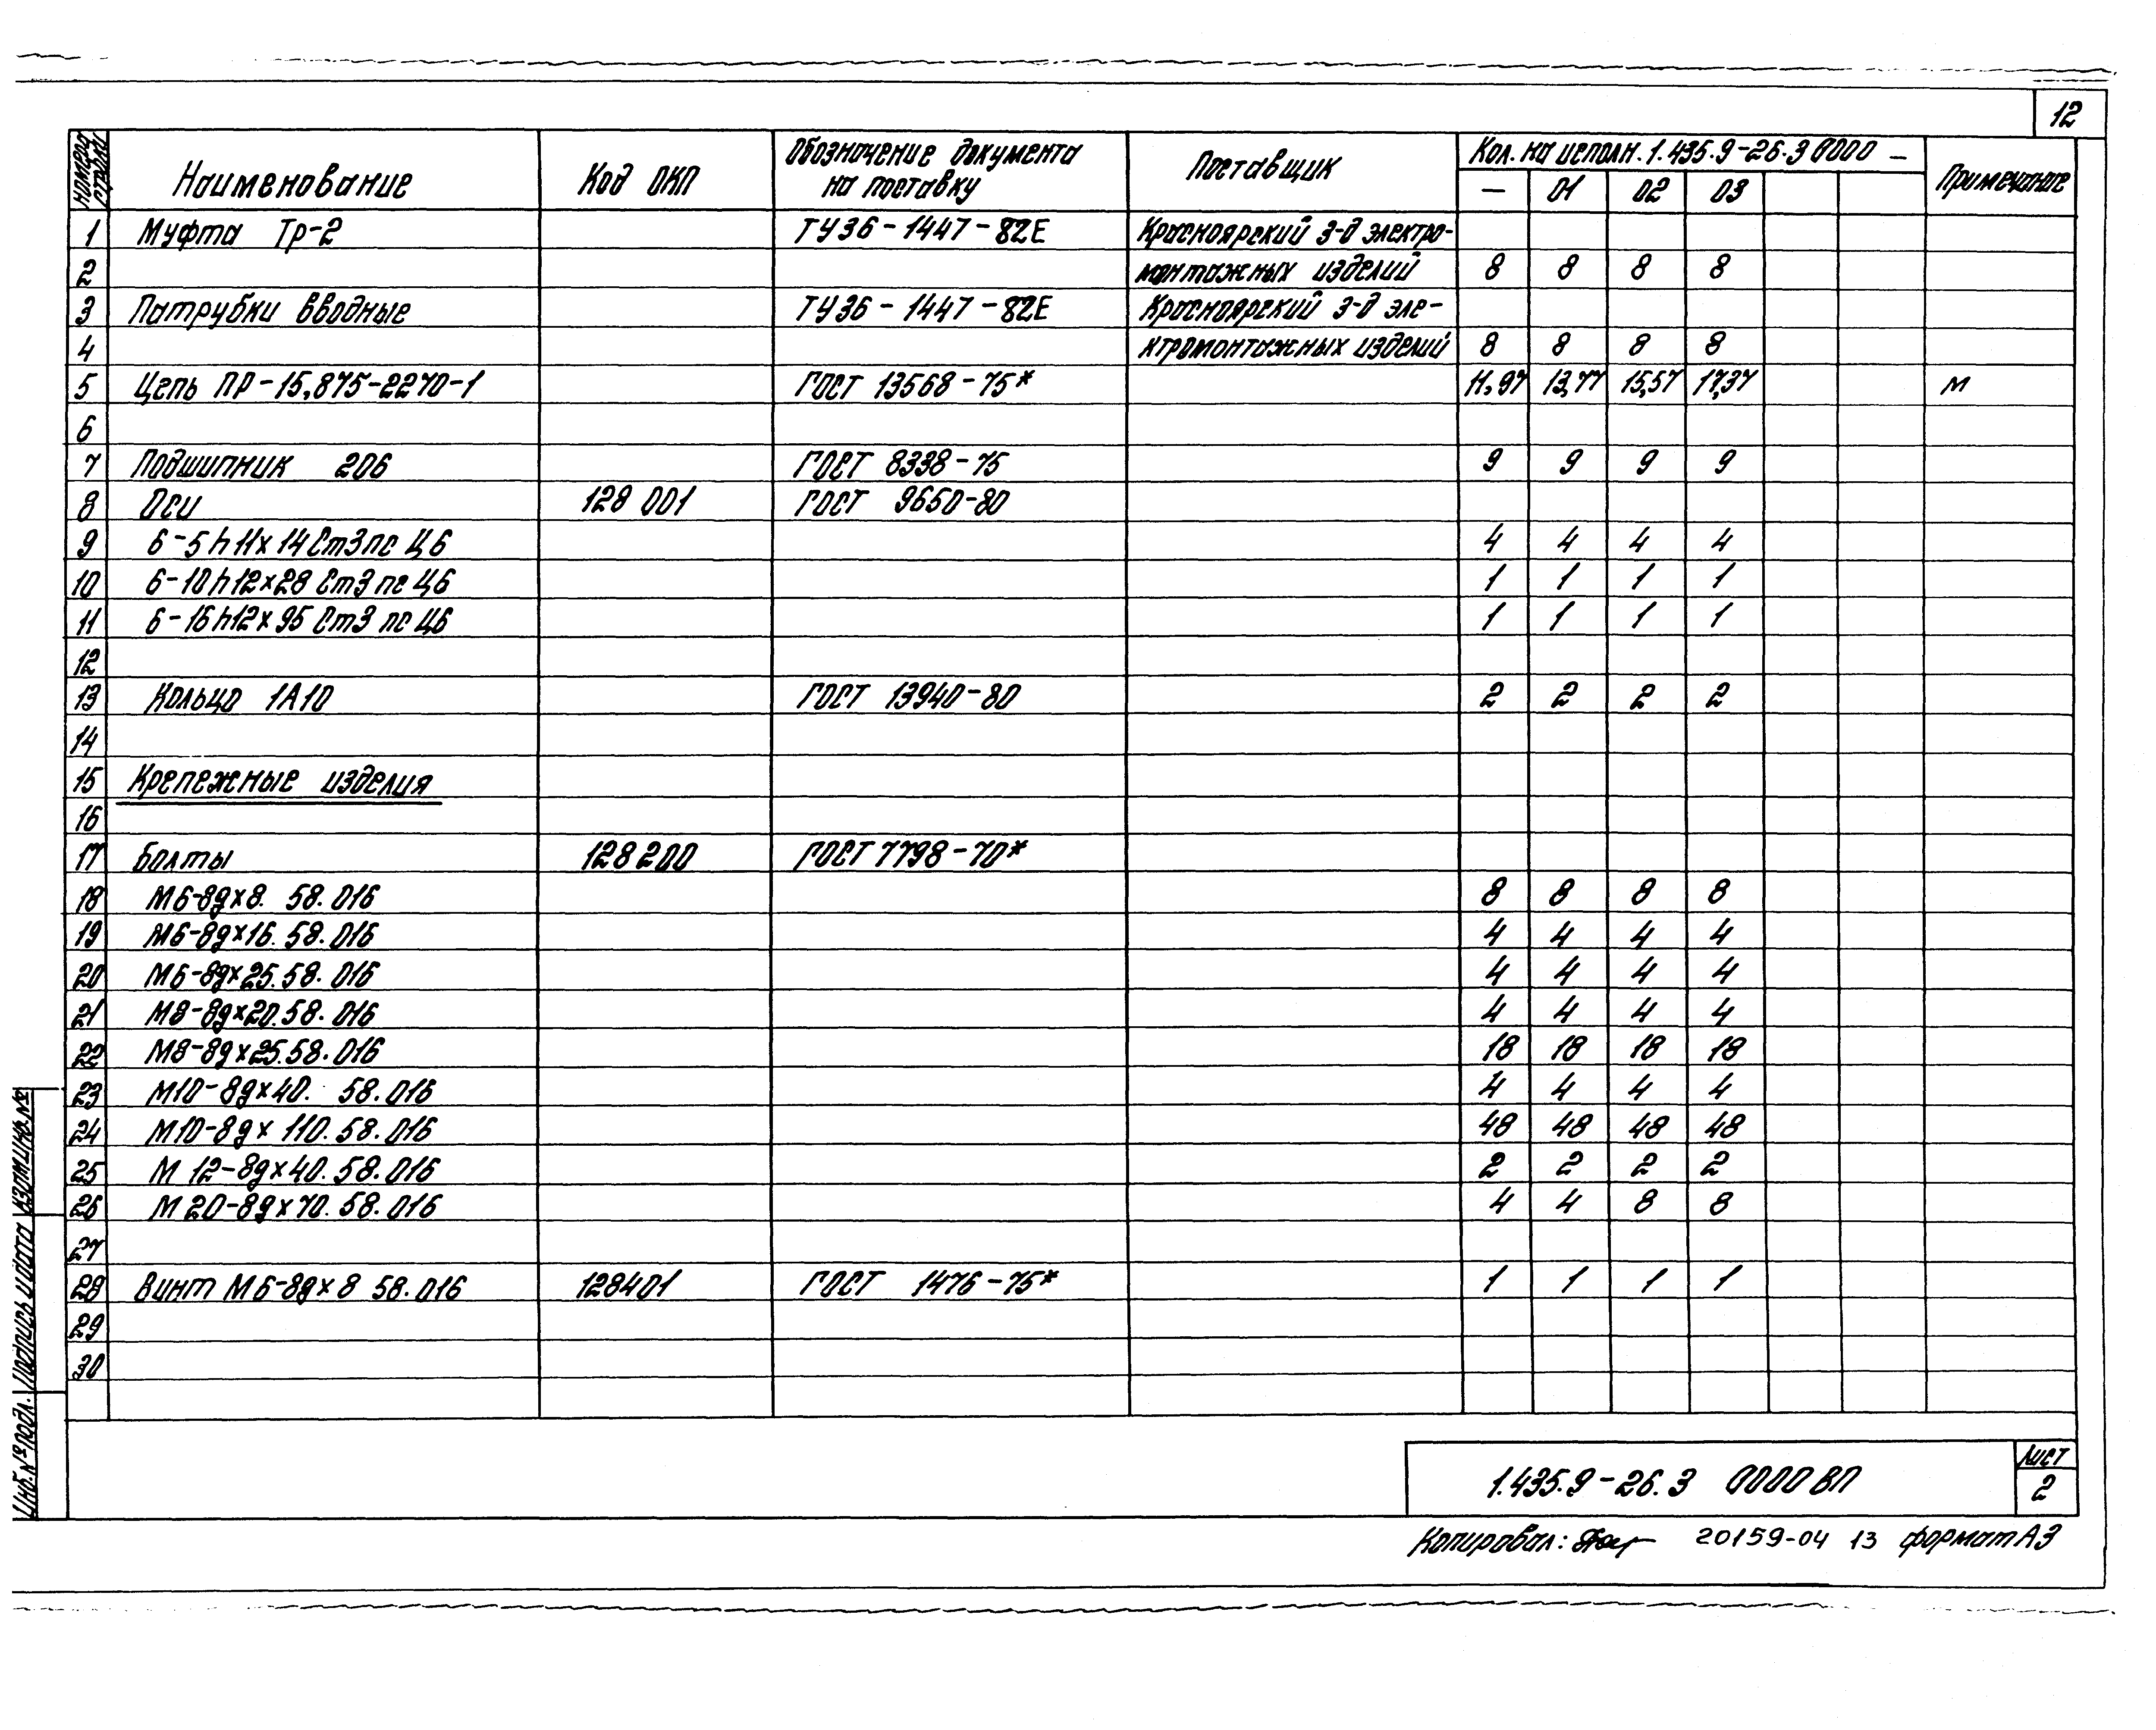 12
Номер строки Наименование Код ОКП Обозначение документа на поставку Поставщик Кол. на исполн. 1.435.9-26.3 0000 - Примечание
— 01 02 03
1 Муфта Тр-2 ТУ36-1447-82Е Красноярский з-д электро-
2 монтажных изделий 8 8 8 8
3 Патрубки вводные ТУ36-1447-82Е Красноярский з-д эле-
4 ктромонтажных изделий 8 8 8 8
5 Цепь ПР-15,875-2270-1 ГОСТ 13568-75* 11,97 13,77 15,57 17,37 м
6
7 Подшипник 206 ГОСТ 8338-75 9 9 9 9
8 Оси 128 001 ГОСТ 9650-80
9 6-5h11х14 Ст3пс Ц6 4 4 4 4
10 6-10h12х28 Ст3пс Ц6 1 1 1 1
11 6-16h12х95 Ст3 пс Ц6 1 1 1 1
12
13 Кольцо 1А10 ГОСТ 13940-80 2 2 2 2
14
15 Крепежные изделия
16
17 Болты 128200 ГОСТ 7798-70*
18 М6-8gх8. 58.016 8 8 8 8
19 М6-8gх16. 58.016 4 4 4 4
20 М6-8gх25.58.016 4 4 4 4
21 М8-8gх20.58.016 4 4 4 4
22 М8-8gх25.58.016 18 18 18 18
23 М10-8gх40. 58.016 4 4 4 4
24 М10-8gх110.58.016 48 48 48 48
25 М12-8gх40.58.016 2 2 2 2
26 М20-8gх70.58.016 4 4 8 8
27
28 Винт М6-8gх8 58.016 128401 ГОСТ 1476-75* 1 1 1 1
29
30
Инв.№ подл. Подпись и дата Взам.инв.№
1.435.9-26.3 0000ВП Лист
2
Копировал: 20159-04 13 формат А3